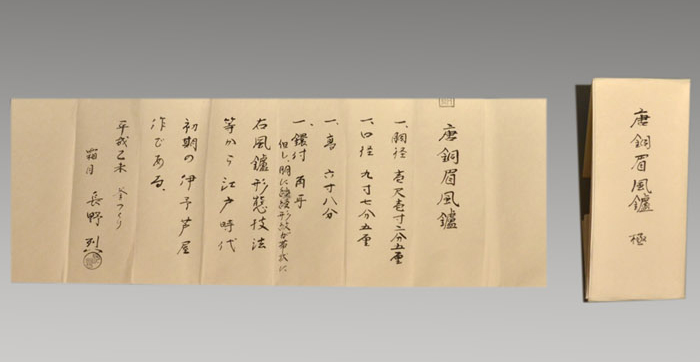 唐銅眉風鑪
一、胴径 壱尺壱寸二分五厘
一、口径 九寸七分五厘
一、高 六寸八分
一、鐶付 角耳
但し、胴に 形紋が帯状に
右風鑪形態技法
等から江戸時代
初期の伊予芦屋
作である。
平成乙未 釜つくり
霜月 長野烈
唐銅眉風鑪 極